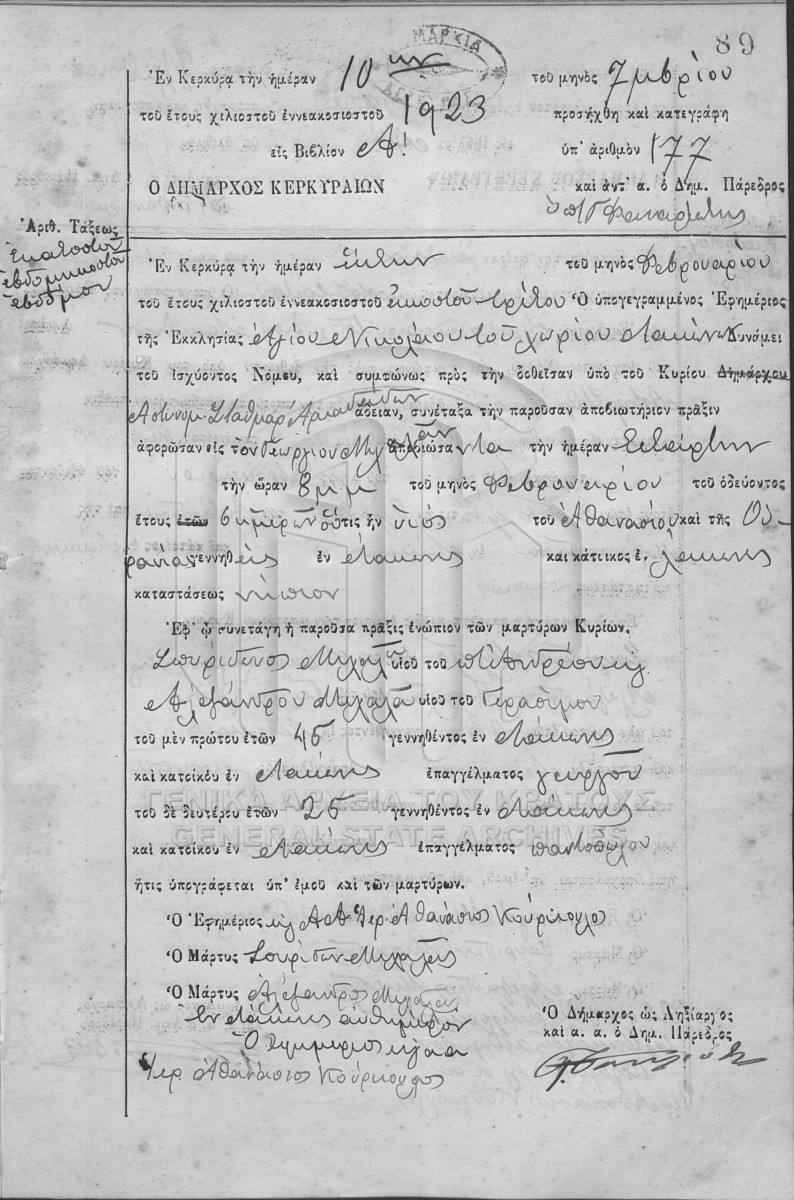 89
ΜΑΡΧΙΑ
Ἐν Κερκύρᾳ τὴν ἡμέραν 10ην τοῦ μηνὸς 7μβρίου
τοῦ ἔτους χιλιοστοῦ ἐννεακοσιοστοῦ 1923 προσήχθη καὶ κατεγράφη
εἰς Βιβλίον Α! ὑπ' ἀριθμὸν 177
Ο ΔΗΜΑΡΧΟΣ ΚΕΡΚΥΡΑΙΩΝ καὶ ἀντ' α. ὁ Δημ. Πάρεδρος
Ἀριθ. Τάξεως
Ἑκατοστὸν
ἑβδομηκοστὸν
ἕβδομον
Ἐν Κερκύρᾳ τὴν ἡμέραν ἕκτην τοῦ μηνὸς Φεβρουαρίου
τοῦ ἔτους χιλιοστοῦ ἐννεακοσιοστοῦ εἰκοστοῦ τρίτου Ὁ ὑπογεγραμμένος Ἐφημέριος
τῆς Ἐκκλησίας Ἁγίου Νικολάου τοῦ χωρίου Λακώνων Δυνάμει
τοῦ ἰσχύοντος Νόμου, καὶ συμφώνως πρὸς τὴν δοθεῖσαν ὑπὸ τοῦ Κυρίου Δημάρχου
Ἀστυνομ. Σταθμάρ. ἄδειαν, συνέταξα τὴν παροῦσαν ἀποβιωτήριον πρᾶξιν
ἀφορῶσαν εἰς τὸν Γεώργιον Μιχαλᾶν ἀποβιώσαντα τὴν ἡμέραν Τετάρτην
τὴν ὥραν 8 μμ τοῦ μηνὸς Φεβρουαρίου τοῦ ὁδεύοντος
ἔτους ἐτῶν 6 ἡμερῶν ὅστις ἦν υἱὸς τοῦ Ἀθανασίου καὶ τῆς Οὐ-
ρανίας γεννηθεὶς ἐν Λάκωνες καὶ κάτοικος ἐ. Λάκωνες
καταστάσεως νήπιον
Ἐφ' ᾧ συνετάγη ἡ παροῦσα πρᾶξις ἐνώπιον τῶν μαρτύρων Κυρίων.
Σπυρίδωνος Μιχαλᾶ υἱοῦ τοῦ Ἀνδρέου
Ἀλεξάνδρου Μιχαλᾶ υἱοῦ τοῦ Γερασίμου
τοῦ μὲν πρώτου ἐτῶν 45 γεννηθέντος ἐν Λάκωνες
καὶ κατοίκου ἐν Λάκωνες ἐπαγγέλματος γεωργοῦ
ΓΕΝΙΚΑ ΑΡΧΕΙΑ ΤΟΥ ΚΡΑΤΟΥΣ
τοῦ δὲ δευτέρου ἐτῶν 25 γεννηθέντος ἐν Λάκωνες
GENERAL STATE ARCHIVES
καὶ κατοίκου ἐν Λάκωνες ἐπαγγέλματος παντοπώλου
ἥτις ὑπογράφεται ὑπ' ἐμοῦ καὶ τῶν μαρτύρων.
Ὁ Ἐφημέριος Ἱερ. Ἀθανάσιος Κούρκουλος
Ὁ Μάρτυς Σπυρίδων Μιχαλᾶς
Ὁ Μάρτυς Ἀλέξανδρος Μιχαλᾶς
Ἐν Λάκωνες αὐθημερὸν
Ὁ Ἐφημέριος
Ἱερ. Ἀθανάσιος Κούρκουλος
Ὁ Δήμαρχος ὡς Ληξίαρχος
καὶ α. α. ὁ Δημ. Πάρεδρος